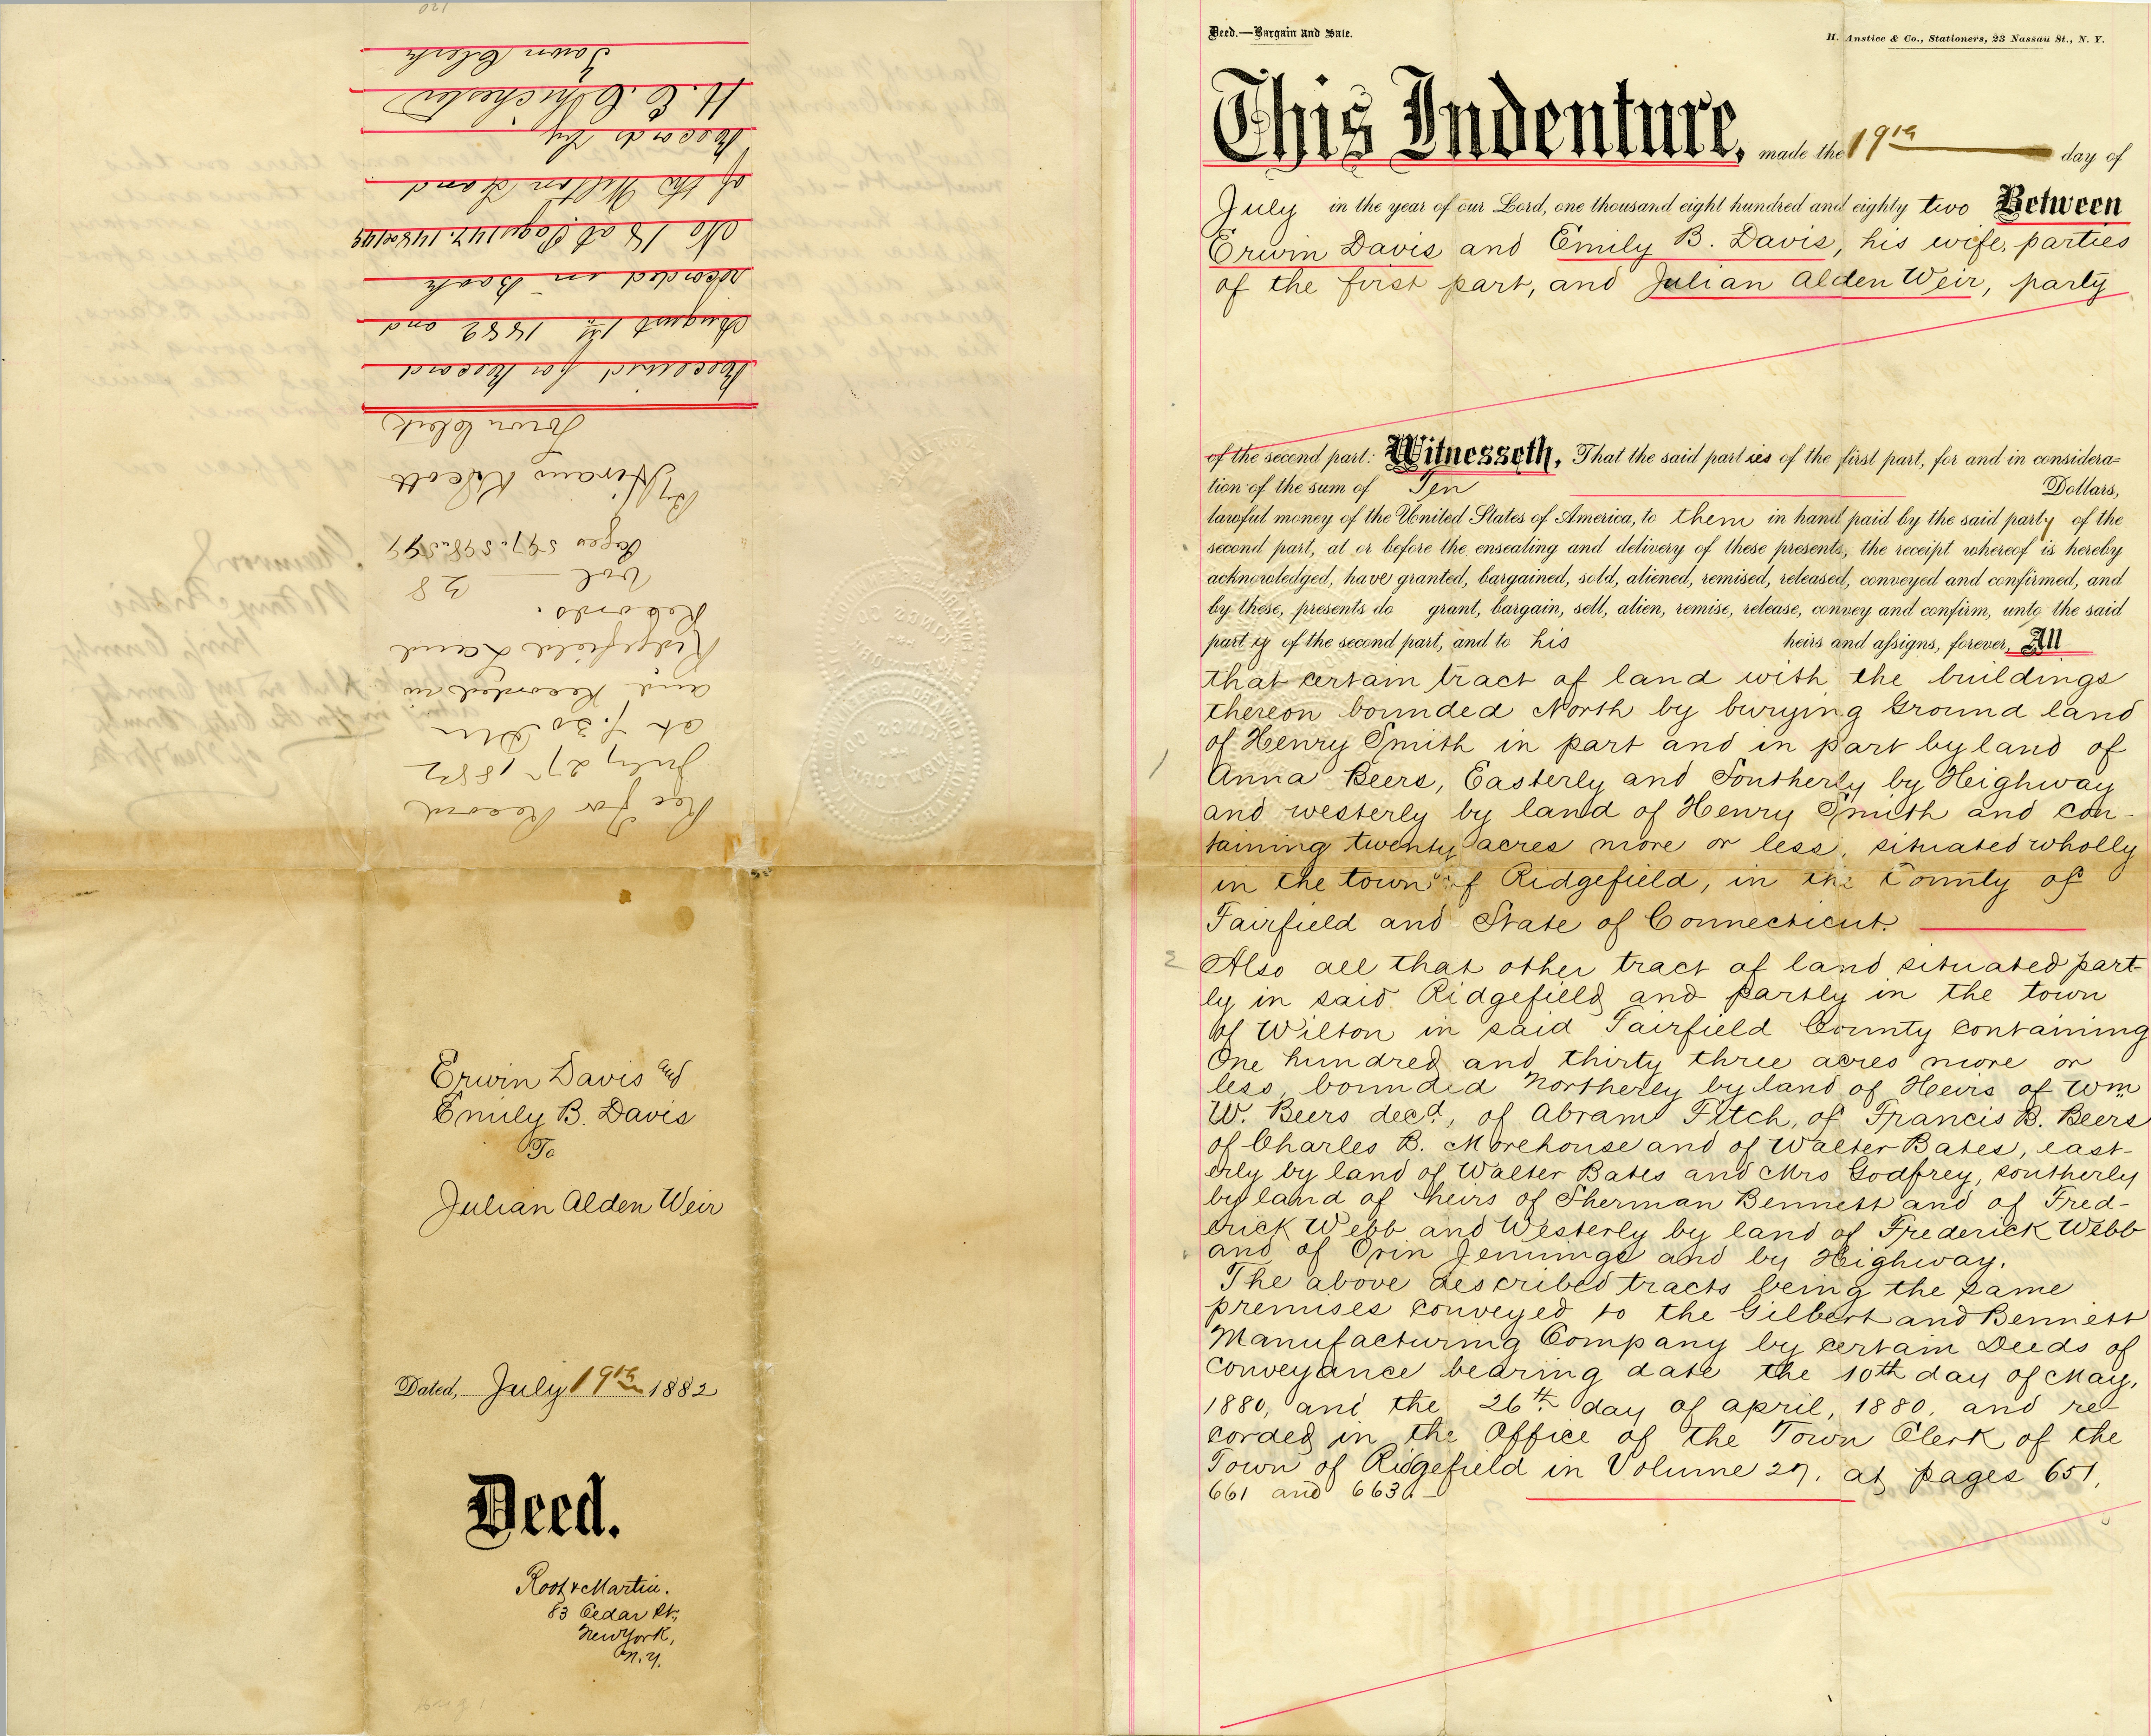 Deed.—Bargain and Sale.
H. Anstice & Co., Stationers, 23 Nassau St., N. Y.
This Indenture, made the 19th day of
July in the year of our Lord, one thousand eight hundred and eighty two Between
Erwin Davis and Emily B. Davis, his wife, parties
of the first part, and Julian Alden Weir, party
of the second part: Witnesseth, That the said parties of the first part, for and in considera=
tion of the sum of Ten Dollars,
lawful money of the United States of America, to them in hand paid by the said party of the
second part, at or before the ensealing and delivery of these presents, the receipt whereof is hereby
acknowledged, have granted, bargained, sold, aliened, remised, released, conveyed and confirmed, and
by these, presents do grant, bargain, sell, alien, remise, release, convey and confirm, unto the said
party of the second part, and to his heirs and assigns, forever, All
1
that certain tract of land with the buildings
thereon bounded North by burying Ground land
of Henry Smith in part and in part by land of
Anna Beers, Easterly and Southerly by Heighway
and westerly by land of Henry Smith and con-
taining twenty acres more or less, situated wholly
in the town of Ridgefield, in the County of
Fairfield and State of Connecticut.
2
Also all that other tract of land situated part-
ly in said Ridgefield and partly in the town
of Wilton in said Fairfield County containing
One hundred and thirty three acres more or
less, bounded Northerly by land of Heirs of Wm
W. Beers decd., of Abram Fitch, of Francis B. Beers
of Charles B. Morehouse and of Walter Bates, east-
erly by land of Walter Bates and Mrs Godfrey, southerly
by land of heirs of Sherman Bennett and of Fred-
erick Webb and Westerly by land of Frederick Webb
and of Orin Jennings and by Heighway.
The above described tracts being the same
premises conveyed to the Gilbert and Bennett
Manufacturing Company by certain Deeds of
conveyance bearing date the 10th day of May,
1880, and the 26th day of april, 1880, and re-
corded in the Office of the Town Clerk of the
Town of Ridgefield in Volume 27, at pages 651,
661 and 663.
Erwin Davis and
Emily B. Davis
To
Julian Alden Weir
Dated, July 19th 1882
Deed.
Root & Martin.
83 Cedar St,
New York,
N.Y.
Rec for Record
July 27th 1882
at 7.30 Pm
and Recorded in
Ridgefield Land
Records.
Vol 28
Pages 597, 598 & 599
By Hiram K Scott
Town Clerk
Received for Record
August 1st 1882 and
recorded in Book
No 18 at Page 147, 148 & 149
of the Wilton Land
Records by
H. E. Chichester
Town Clerk
120